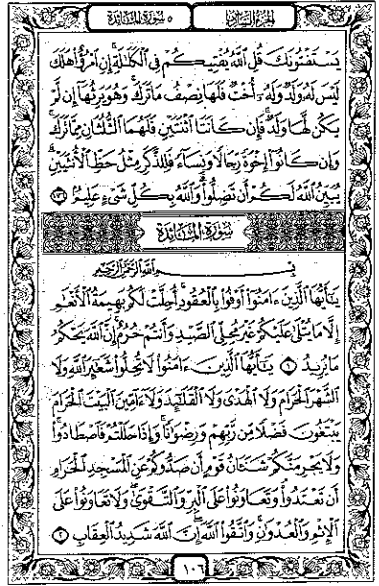 الجزء السادس ٥ سورة المائدة
يَسْتَفْتُونَكَ قُلِ اللَّهُ يُفْتِيكُمْ فِي الْكَلَالَةِ إِنِ امْرُؤٌا هَلَكَ
لَيْسَ لَهُ وَلَدٌ وَلَهُ أُخْتٌ فَلَهَا نِصْفُ مَا تَرَكَ وَهُوَ يَرِثُهَا إِن لَّمْ
يَكُن لَّهَا وَلَدٌ فَإِن كَانَتَا اثْنَتَيْنِ فَلَهُمَا الثُّلُثَانِ مِمَّا تَرَكَ
وَإِن كَانُوٓا إِخْوَةً رِّجَالًا وَنِسَآءً فَلِلذَّكَرِ مِثْلُ حَظِّ الْأُنثَيَيْنِ
يُبَيِّنُ اللَّهُ لَكُمْ أَن تَضِلُّوا وَاللَّهُ بِكُلِّ شَىْءٍ عَلِيمٌ ١٧٦
سورة المائدة
بِسْمِ اللَّهِ الرَّحْمَٰنِ الرَّحِيمِ
يَٰٓأَيُّهَا الَّذِينَ ءَامَنُوٓا أَوْفُوا بِالْعُقُودِ أُحِلَّتْ لَكُم بَهِيمَةُ الْأَنْعَٰمِ
إِلَّا مَا يُتْلَىٰ عَلَيْكُمْ غَيْرَ مُحِلِّى الصَّيْدِ وَأَنتُمْ حُرُمٌ إِنَّ اللَّهَ يَحْكُمُ
مَا يُرِيدُ ١ يَٰٓأَيُّهَا الَّذِينَ ءَامَنُوا لَا تُحِلُّوا شَعَٰٓئِرَ اللَّهِ وَلَا
الشَّهْرَ الْحَرَامَ وَلَا الْهَدْىَ وَلَا الْقَلَٰٓئِدَ وَلَآ ءَآمِّينَ الْبَيْتَ الْحَرَامَ
يَبْتَغُونَ فَضْلًا مِّن رَّبِّهِمْ وَرِضْوَٰنًا وَإِذَا حَلَلْتُمْ فَاصْطَادُوا
وَلَا يَجْرِمَنَّكُمْ شَنَـَٔانُ قَوْمٍ أَن صَدُّوكُمْ عَنِ الْمَسْجِدِ الْحَرَامِ
أَن تَعْتَدُوا وَتَعَاوَنُوا عَلَى الْبِرِّ وَالتَّقْوَىٰ وَلَا تَعَاوَنُوا عَلَى
الْإِثْمِ وَالْعُدْوَٰنِ وَاتَّقُوا اللَّهَ إِنَّ اللَّهَ شَدِيدُ الْعِقَابِ ٢
١٠٦